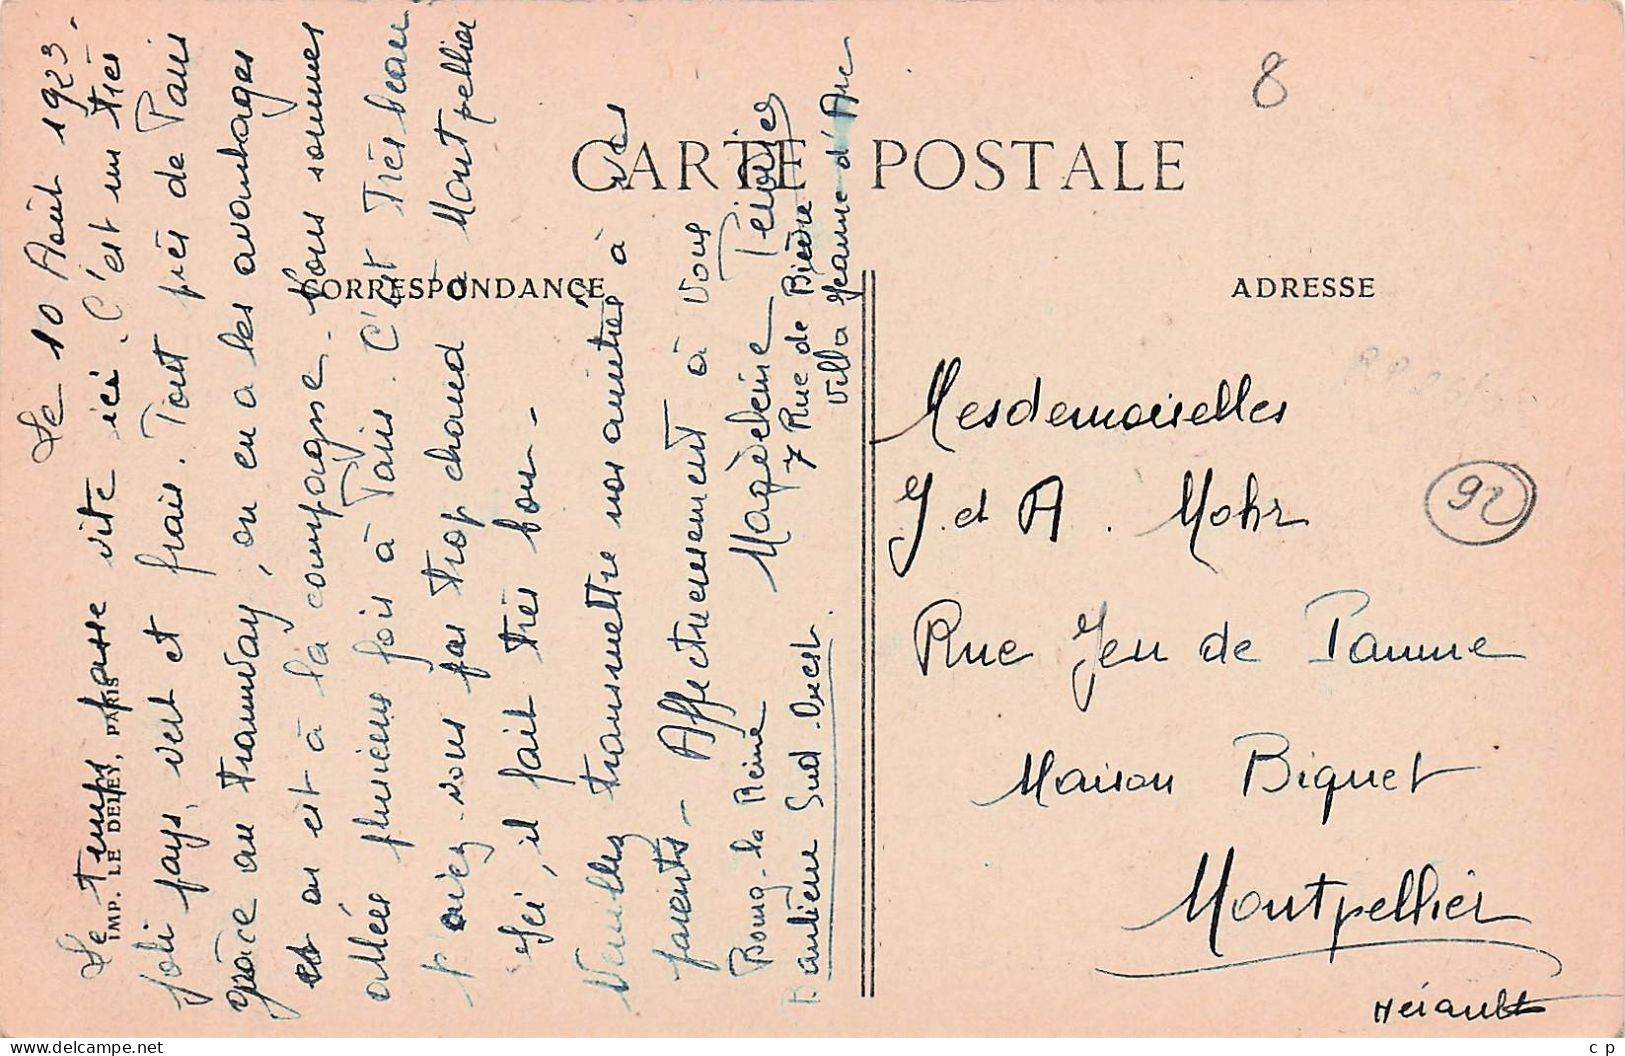 CARTE POSTALE
CORRESPONDANCE
ADRESSE
IMP. LE DELEY, PARIS
8
92
Le 10 Août 1923.
Le temps passe vite ici. C'est un très
joli pays, vert et frais. Tout près de Paris
grâce au tramway, on en a les avantages
et on est à la campagne. Nous sommes
allées plusieurs fois à Paris. C'est très beau
N'avez-vous pas trop chaud à Montpellier
Ici, il fait très bon -
Veuillez transmettre nos amitiés à vos
parents - Affectueusement à vous
Magdeleine Teissier
Bourg-la Reine 7 Rue de Bièvre
Banlieue Sud-Ouest. Villa Jeanne d'Arc
Mesdemoiselles
J. et A. Mohr
Rue Jeu de Paume
Maison Biquet
Montpellier
Hérault
c p